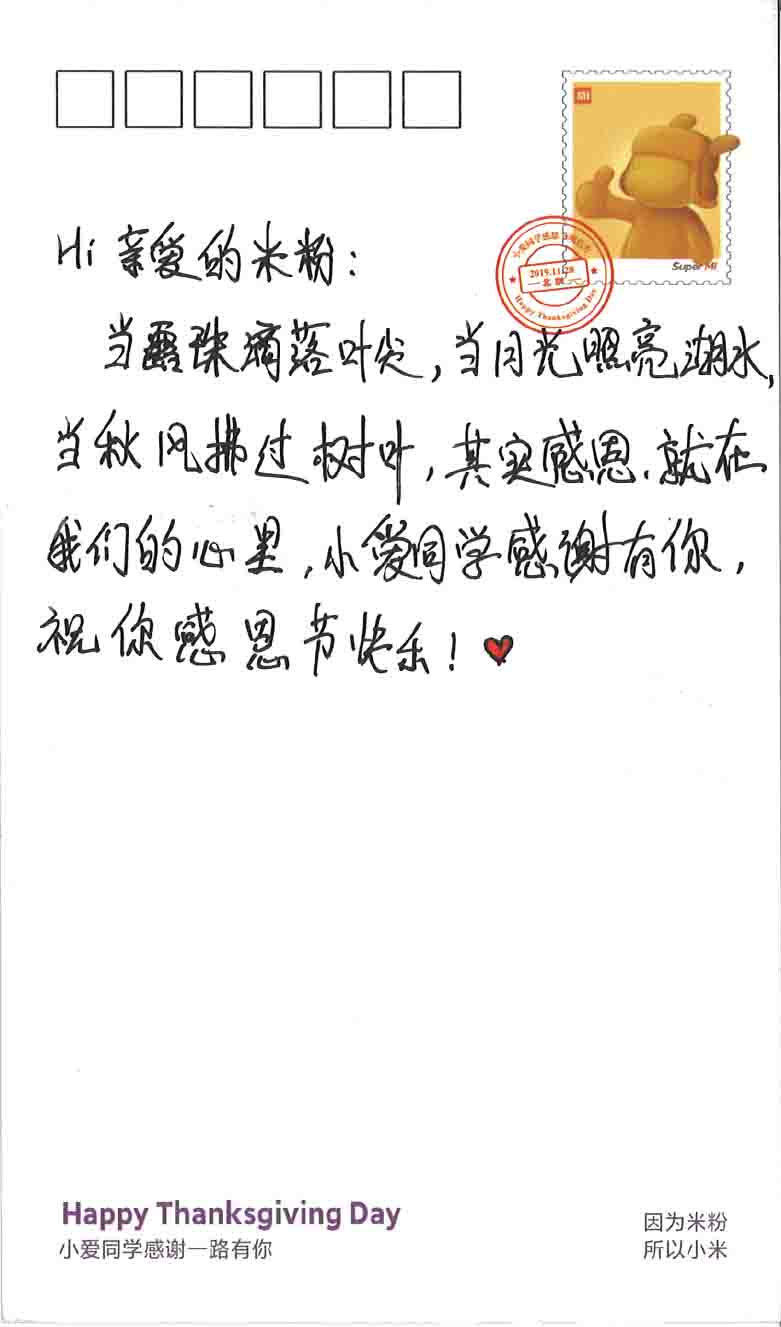 MI
Super Mi
2019.11.28
Happy Thanksgiving Day
Hi 亲爱的米粉：
当露珠滴落叶尖，当月光照亮湖水，
当秋风拂过树叶，其实感恩、就在
我们的心里，小爱同学感谢有你，
祝你感恩节快乐！
Happy Thanksgiving Day
小爱同学感谢一路有你
因为米粉
所以小米